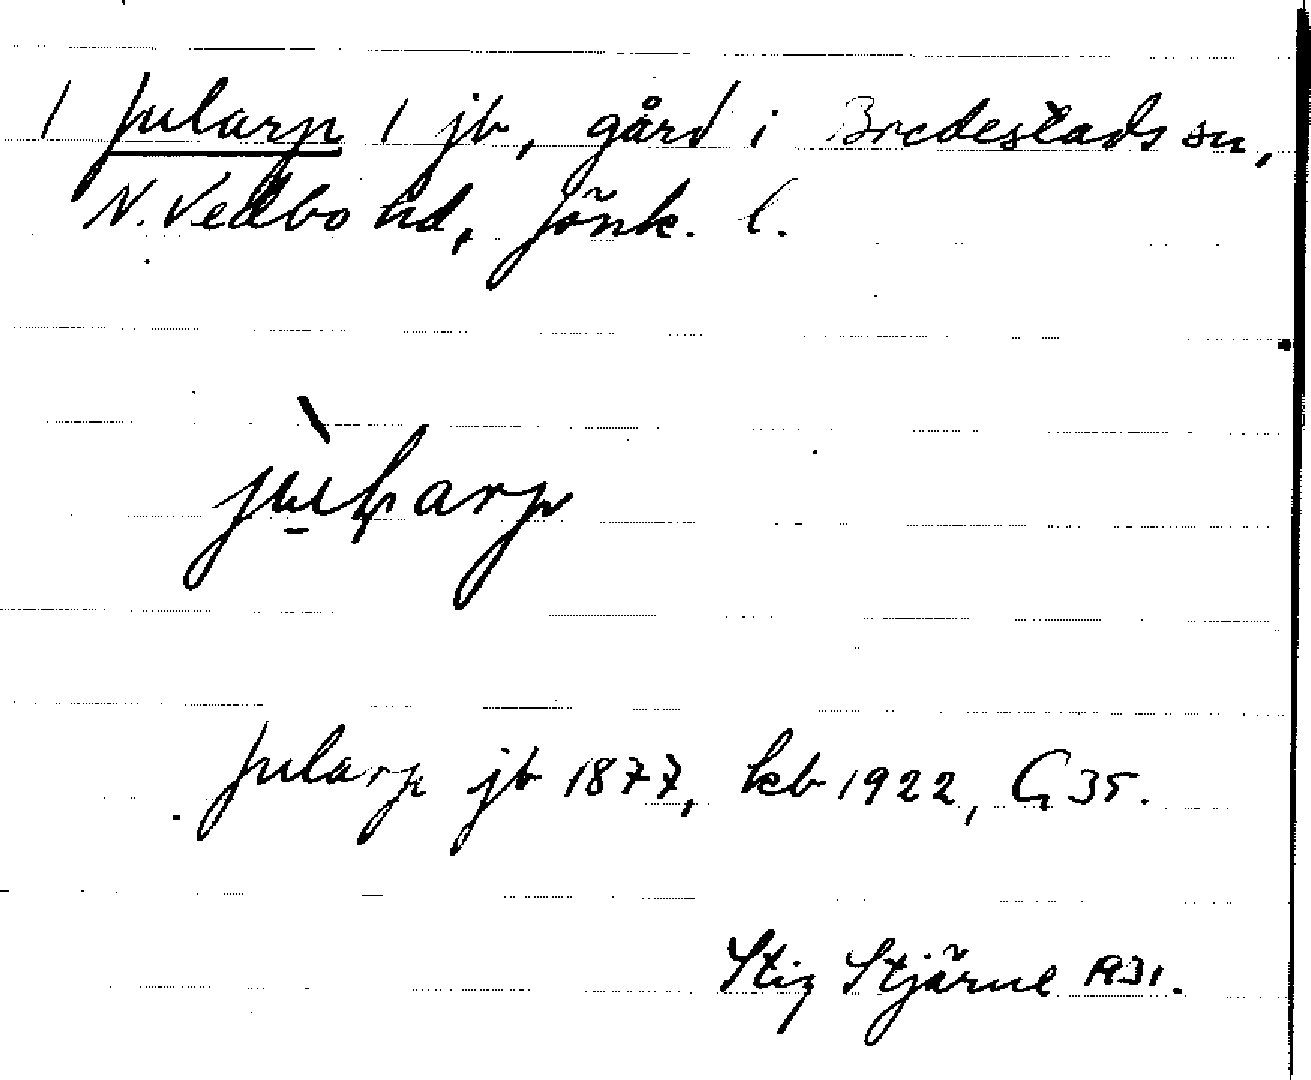 1 Jularp 1 jb, gård i Bredestads sn,
N. Vedbo hd, Jönk. l.
jùlarp
Jularp jb 1877, kb 1922, G 35.
Stig Stjärne 1931.